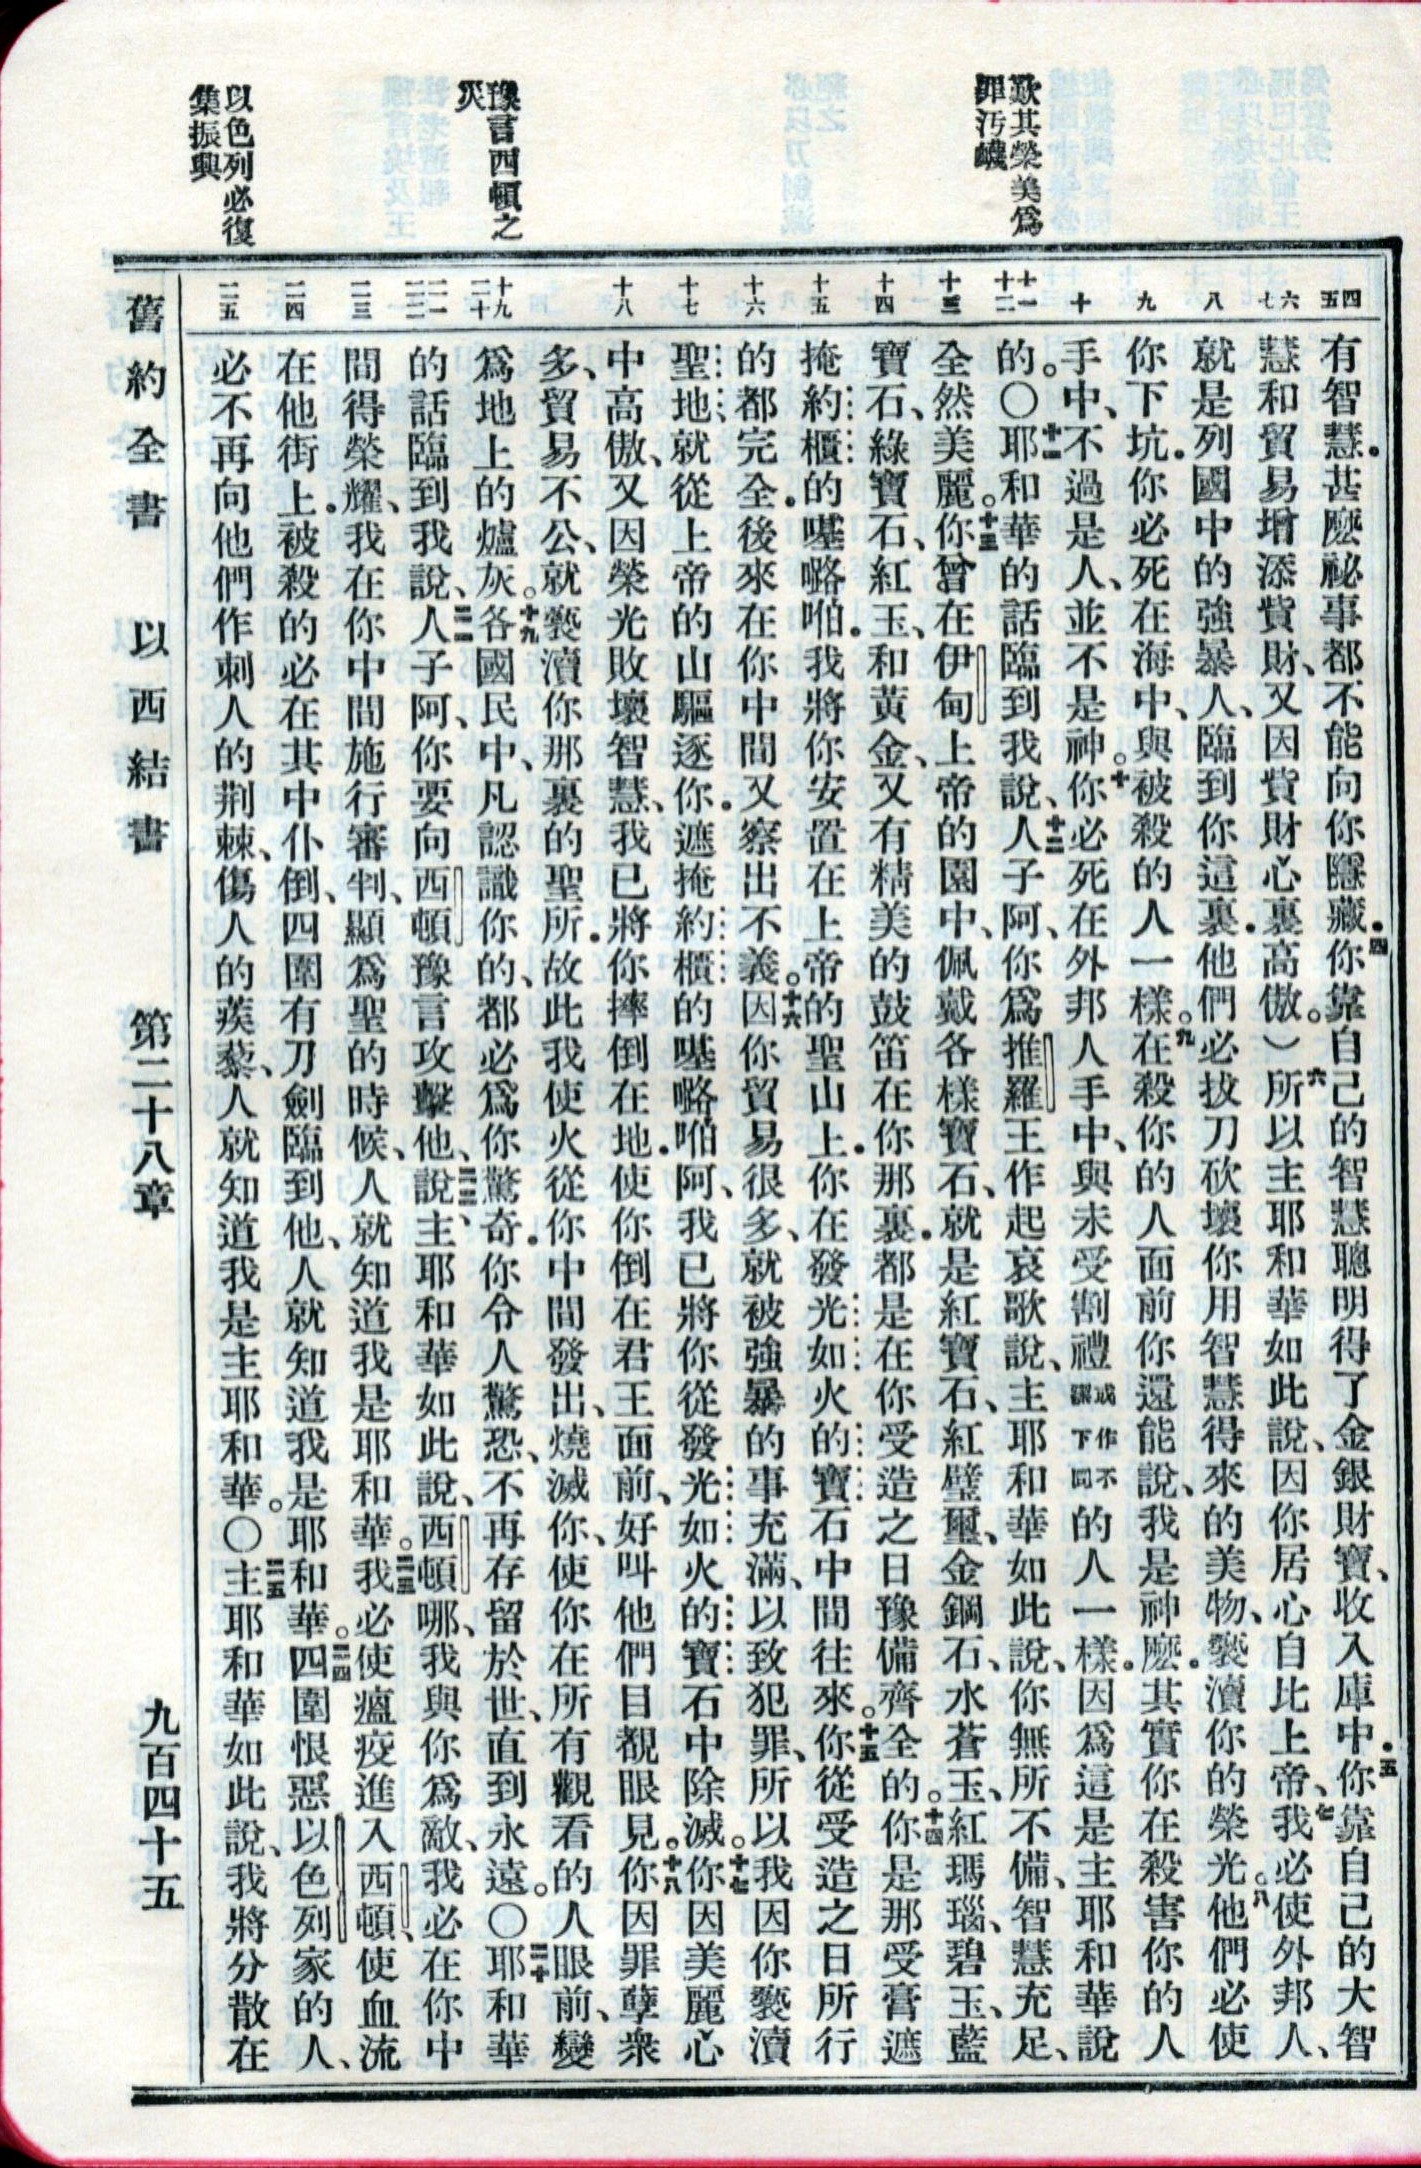 歎其榮美爲
罪汚衊
豫言西頓之
災
以色列必復
集振興
四
五
六
七
八
九
十
十一
十二
十三
十四
十五
十六
十七
十八
十九
二十
二一
二二
二三
二四
二五
有智慧．甚麼祕事都不能向你隱藏．四你靠自己的智慧聰明得了金銀財寶、收入庫中．五你靠自己的大智
慧和貿易增添貲財、又因貲財心裏高傲。）六所以主耶和華如此說、因你居心自比上帝、七我必使外邦人、
就是列國中的強暴人、臨到你這裏．他們必拔刀砍壞你用智慧得來的美物、褻瀆你的榮光。八他們必使
你下坑．你必死在海中、與被殺的人一樣。九在殺你的人面前你還能說、我是神麼．其實你在殺害你的人
手中、不過是人、並不是神。十你必死在外邦人手中、與未受割禮或作不譯下同的人一樣．因爲這是主耶和華說
的。〇十一耶和華的話臨到我說、十二人子阿、你爲推羅王作起哀歌說、主耶和華如此說、你無所不備、智慧充足、
全然美麗。十三你曾在伊甸上帝的園中、佩戴各樣寶石、就是紅寶石、紅璧璽、金鋼石、水蒼玉、紅瑪瑙、碧玉、藍
寶石、綠寶石、紅玉、和黃金、又有精美的鼓笛在你那裏．都是在你受造之日豫備齊全的。十四你是那受膏遮
掩約櫃的𠼻㗉啪．我將你安置在上帝的聖山上．你在發光如火的寶石中間往來。十五你從受造之日所行
的都完全．後來在你中間又察出不義。十六因你貿易很多、就被強暴的事充滿、以致犯罪、所以我因你褻瀆
聖地、就從上帝的山驅逐你．遮掩約櫃的𠼻㗉啪阿、我已將你從發光如火的寶石中除滅。十七你因美麗心
中高傲、又因榮光敗壞智慧、我已將你摔倒在地．使你倒在君王面前、好叫他們目覩眼見。十八你因罪孽衆
多、貿易不公、就褻瀆你那裏的聖所．故此我使火從你中間發出、燒滅你、使你在所有觀看的人眼前、變
爲地上的爐灰。十九各國民中、凡認識你的、都必爲你驚奇．你令人驚恐、不再存留於世、直到永遠。〇二十耶和華
的話臨到我說、二一人子阿、你要向西頓豫言攻擊他、二二說、主耶和華如此說、西頓哪、我與你爲敵、我必在你中
間得榮耀、我在你中間施行審判、顯爲聖的時候、人就知道我是耶和華。二三我必使瘟疫進入西頓、使血流
在他街上．被殺的必在其中仆倒、四圍有刀劍臨到他、人就知道我是耶和華。二四四圍恨惡以色列家的人、
必不再向他們作刺人的荆棘、傷人的蒺藜、人就知道我是主耶和華。〇二五主耶和華如此說、我將分散在
舊約全書　以西結書　第二十八章　九百四十五